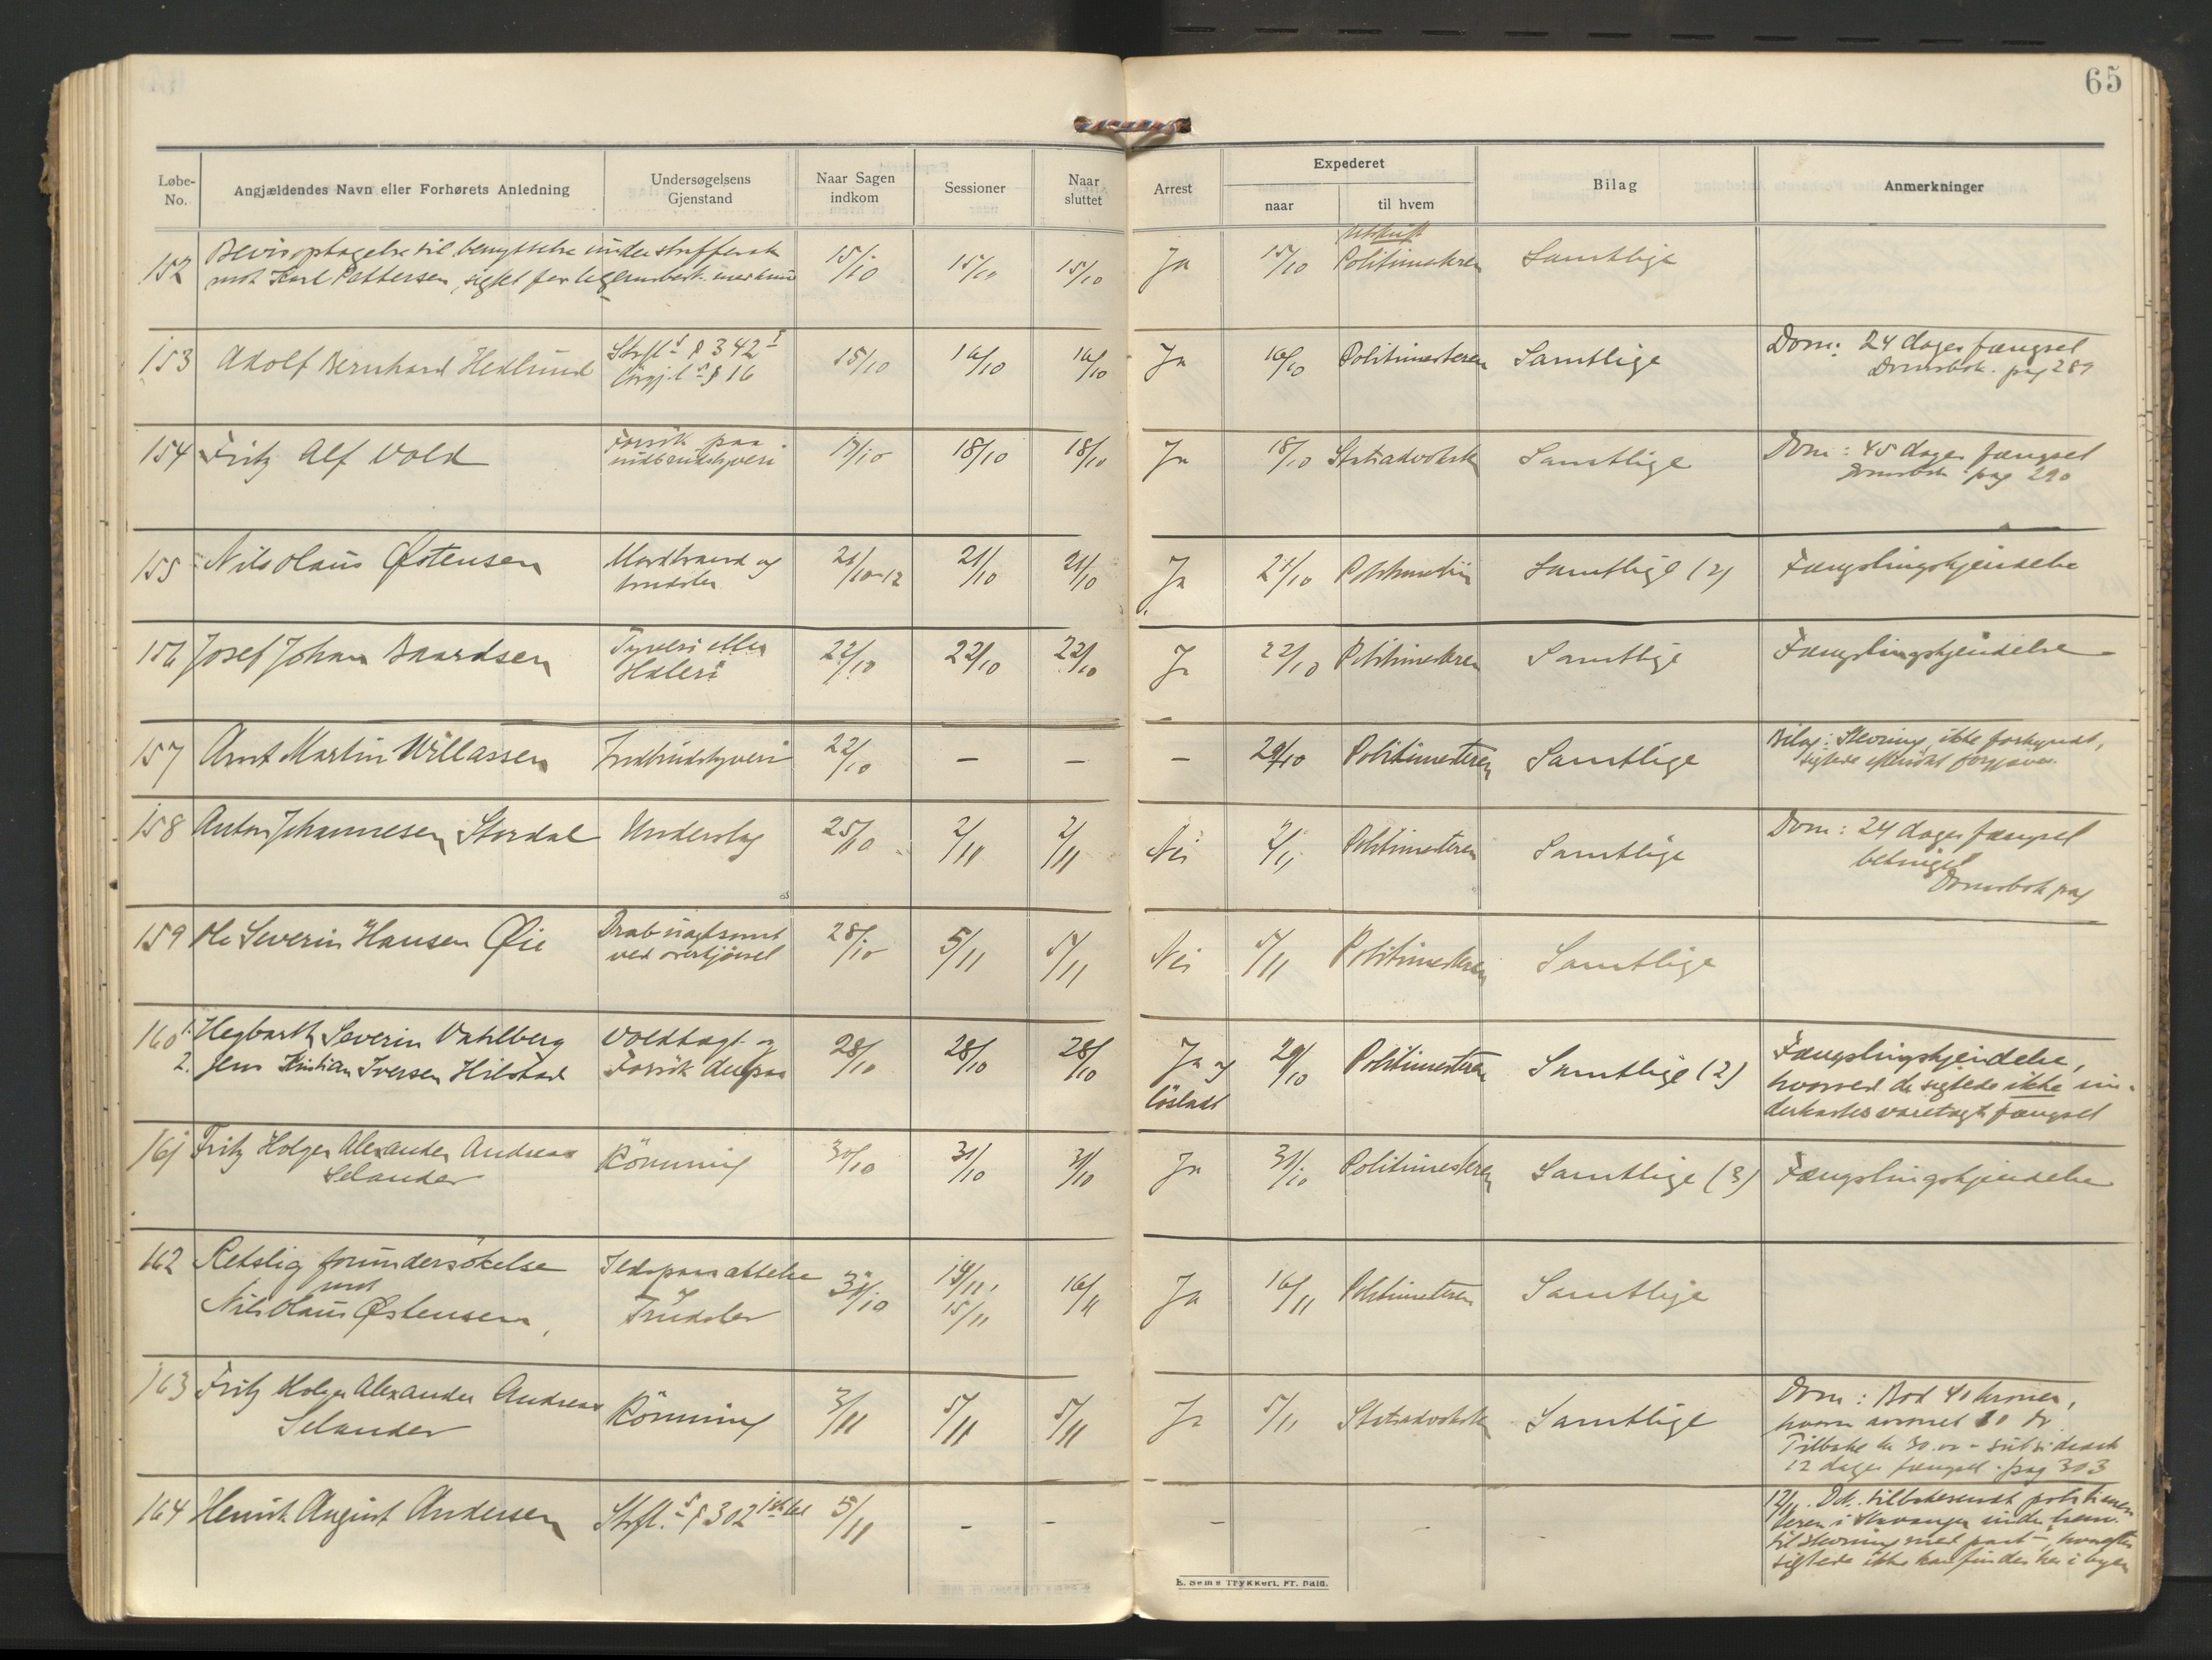 65
Løbe-No. Angjældendes Navn eller Forhørets Anledning Undersøgelsens Gjenstand Naar Sagen indkom Sessioner Naar sluttet Arrest Expederet naar til hvem Bilag Anmerkninger
152 Bevisoptagelse til benyttelse under straffesak 15/10 15/10 15/10 Ja 15/10 Utskrift Politimesteren Samtlige
mot Karl Pettersen, sigtet for
153 Adolf Bernhard Hedlund Strfl.s § 342 1 15/10 16/10 16/10 Ja 16/10 Politimesteren Samtlige Dom: 24 dages fængsel
Løsgj.l.s § 16 Domsbok pag 289
154 Fritz Alf Vold Forsök paa 17/10 18/10 18/10 Ja 18/10 Statsadvokaten Samtlige Dom: 45 dages fængsel
indbrudstyveri Domsbok pag 290
155 Nils Olaus Østensen Mordbrand og 21/10-12 21/10 21/10 Ja 21/10 Politimesteren Samtlige (2) Fængslingskjendelse
trudsler
156 Josef Johan Baardsen Tyveri eller 22/10 22/10 22/10 Ja 22/10 Politimesteren Samtlige Fængslingskjendelse
Heleri
157 Arnt Martin Willassen Indbrudstyveri 22/10 – – – 29/10 Politimesteren Samtlige Bilag: Stevning ikke forkyndt,
sigtede eftersökt forgjæves.
158 Anton Johannesen Stordal Underslag 25/10 2/11 2/11 Nei 2/11 Politimesteren Samtlige Dom: 24 dages fængsel
betinget
Domsbok pag
159 Ole Severin Hansen Øie Drab uagtsomt 28/10 5/11 5/11 Nei 5/11 Politimesteren Samtlige
ved overkjörsel
160 1. Hegbarth Severin Vahlberg Voldtægt og 28/10 28/10 28/10 Ja og 29/10 Politimesteren Samtlige (2) Fængslingskjendelse,
2. Jens Kristian Iversen Hilstad Forsök derpaa lösladt hvorved de sigtede ikke un-
derkastes varetægtsfængsel
161 Fritz Holger Alexander Andreas Römning 30/10 31/10 31/10 Ja 31/10 Politimesteren Samtlige (3) Fængslingskjendelse
Selander
162 Retslig forundersökelse Ildspaasættelse 31/10 14/11, 16/11 Ja 16/11 Politimesteren Samtlige
mot og 15/11
Nils Olaus Østensen, Trudsler
163 Fritz Holger Alexander Andreas Römning 3/11 5/11 5/11 Ja 5/11 Statsadvokaten Samtlige Dom: Bod 40 kroner,
Selander hvorav avsonet 10 kr
Tilbake kr 30.00 – subsidiært
12 dages fængsel. pag 303
164 Henrik August Andersen Strfl.s § 302 1ste led 5/11 – – – – – 12/11. Dok. tilbakesendt politimes-
teren i Stavanger under henv.
til stevning med paat., hvorefter
sigtede ikke kan findes her i byen
E. Sem's Trykkeri, Fr.hald.